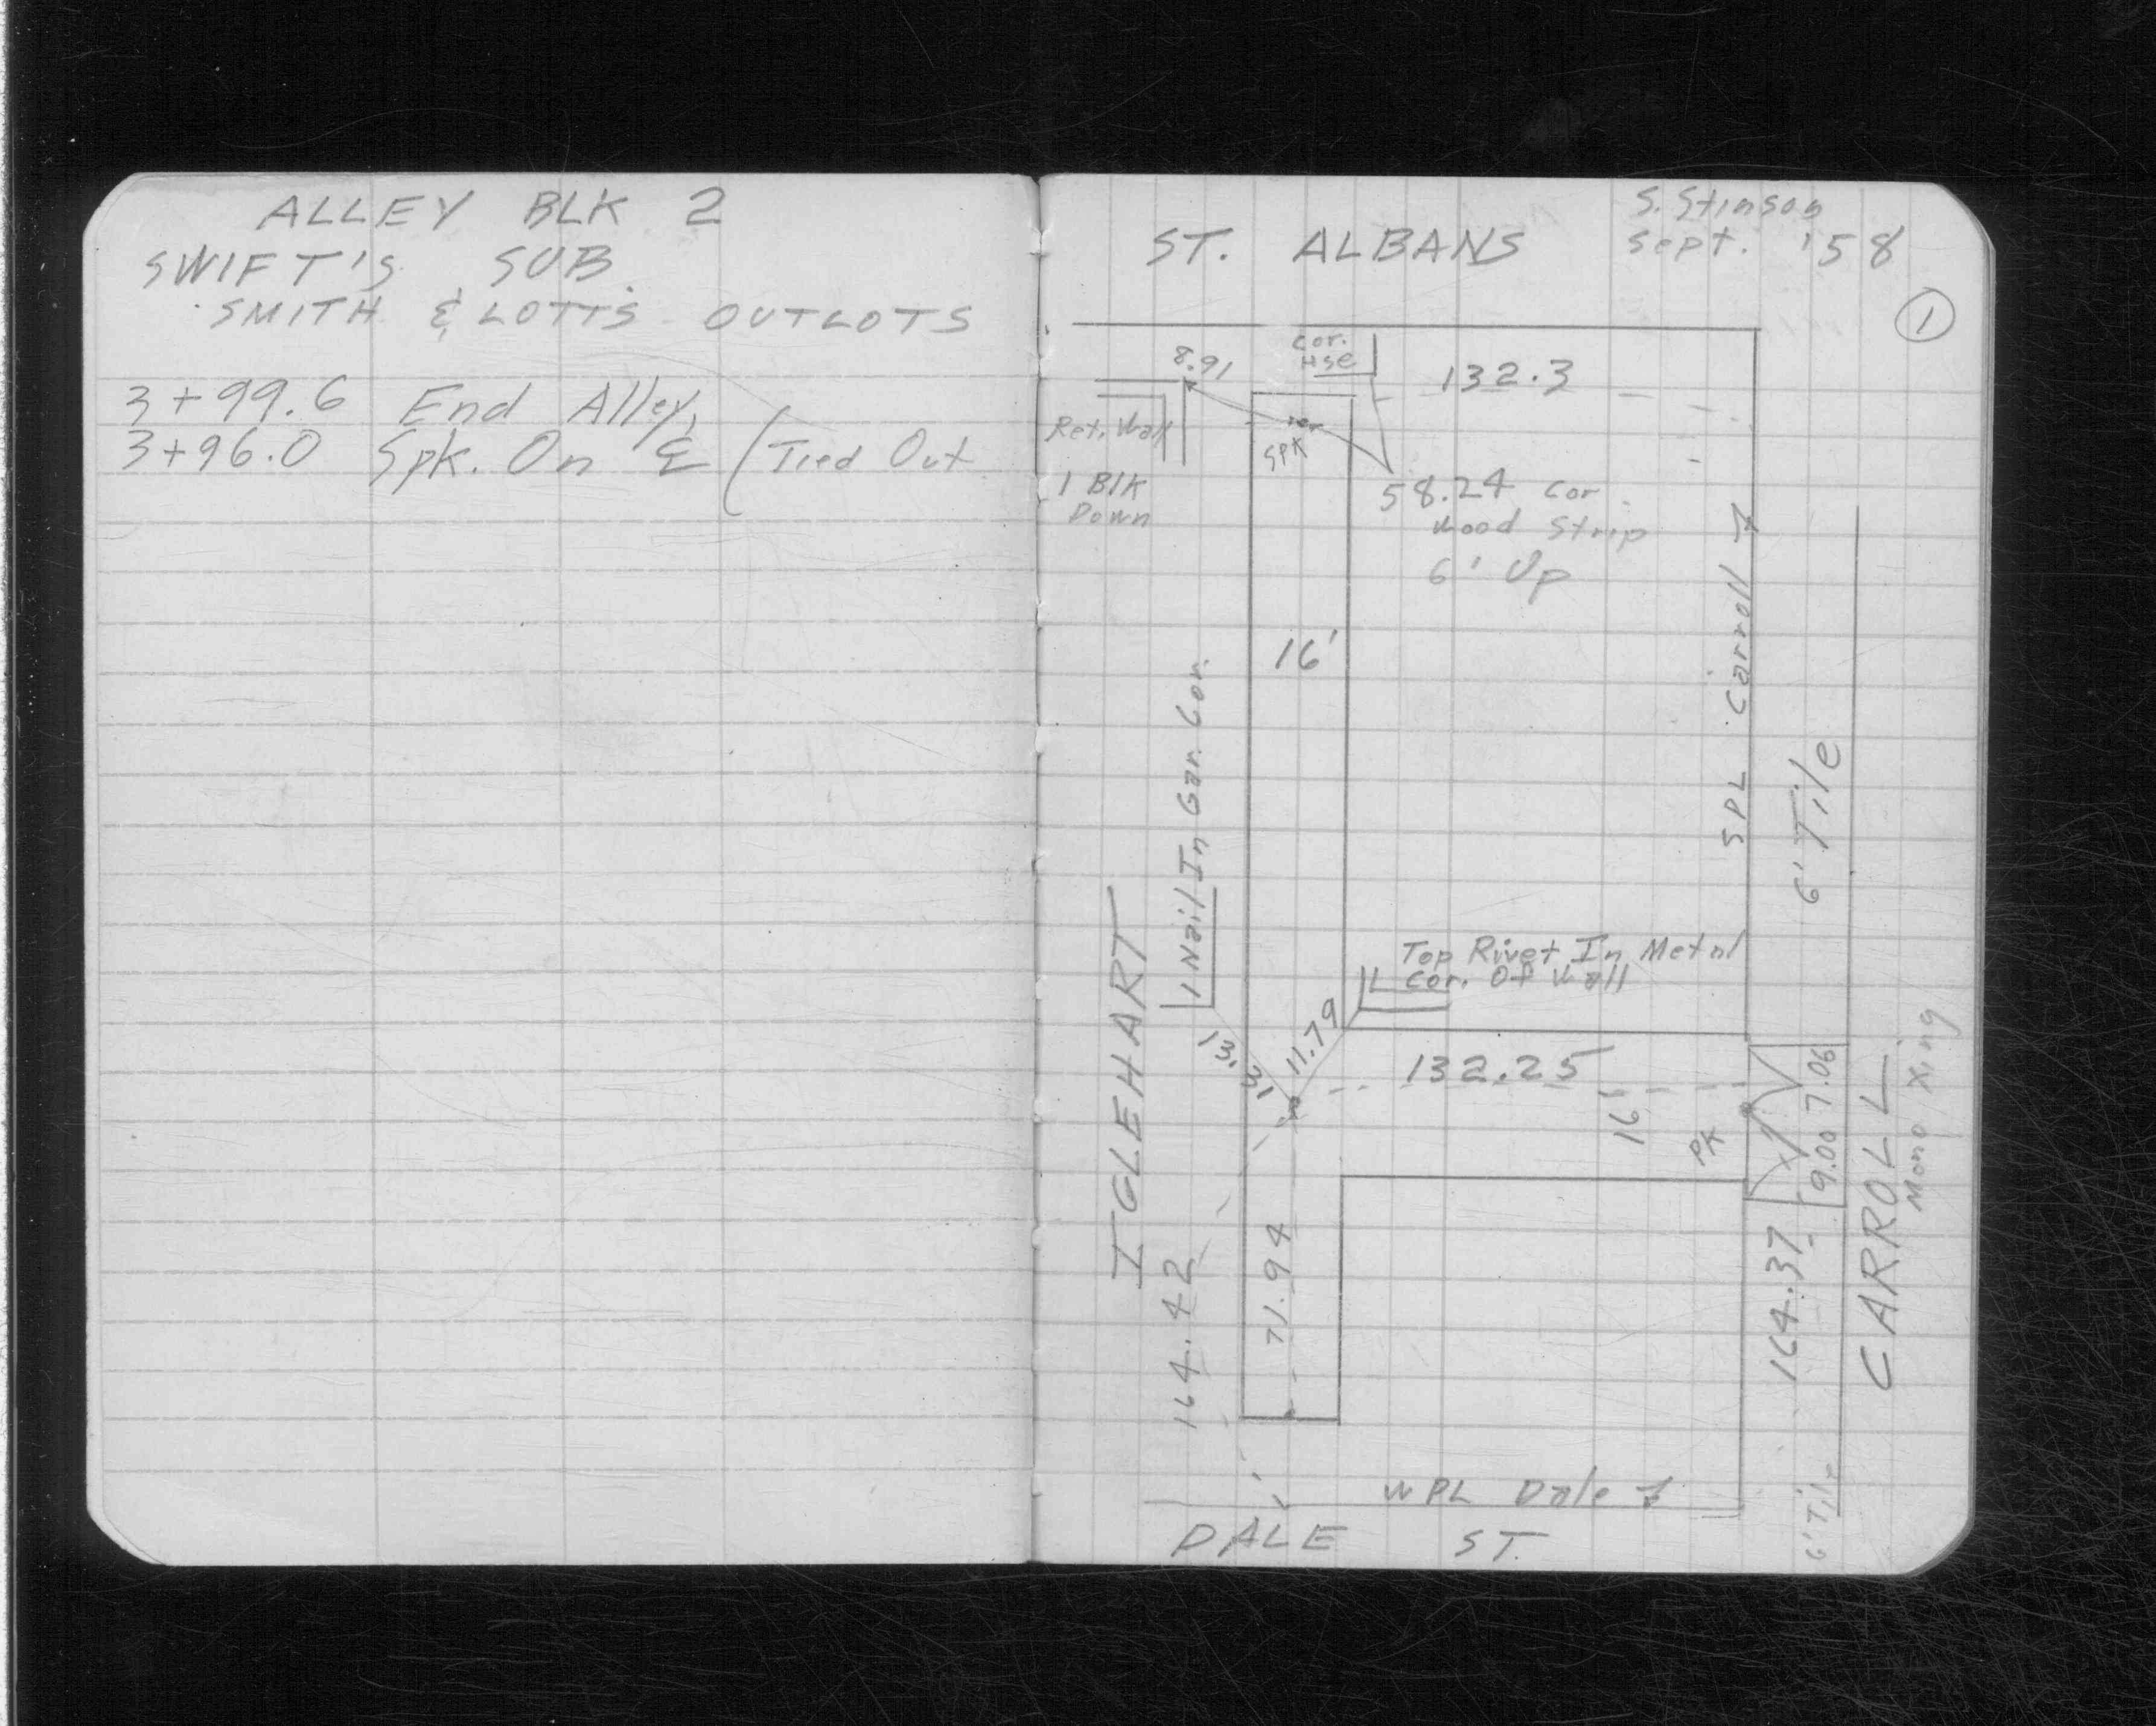 ALLEY BLK 2
SWIFT'S SUB.
SMITH & LOTTS OUTLOTS
3+99.6 End Alley
3+96.0 Spk. On ℄ (Tied Out
S. Stinson
Sept. '58
ST. ALBANS
1
8.91
Cor.
Hse
132.3
Ret. Wall
1 Blk
Down
SPK
58.24 Cor.
Wood Strip
6' Up
16'
SPL Carroll
6' Tile
1 Nail In Gar. Cor.
IGLEHART
Top Rivet In Metal
Cor. Of Wall
13.31
11.79
132.25
16'
PK
9.00 7.06
CARROLL
Mono Xing
164.42
71.94
164.37
WPL Dale
6' Tile
DALE ST.